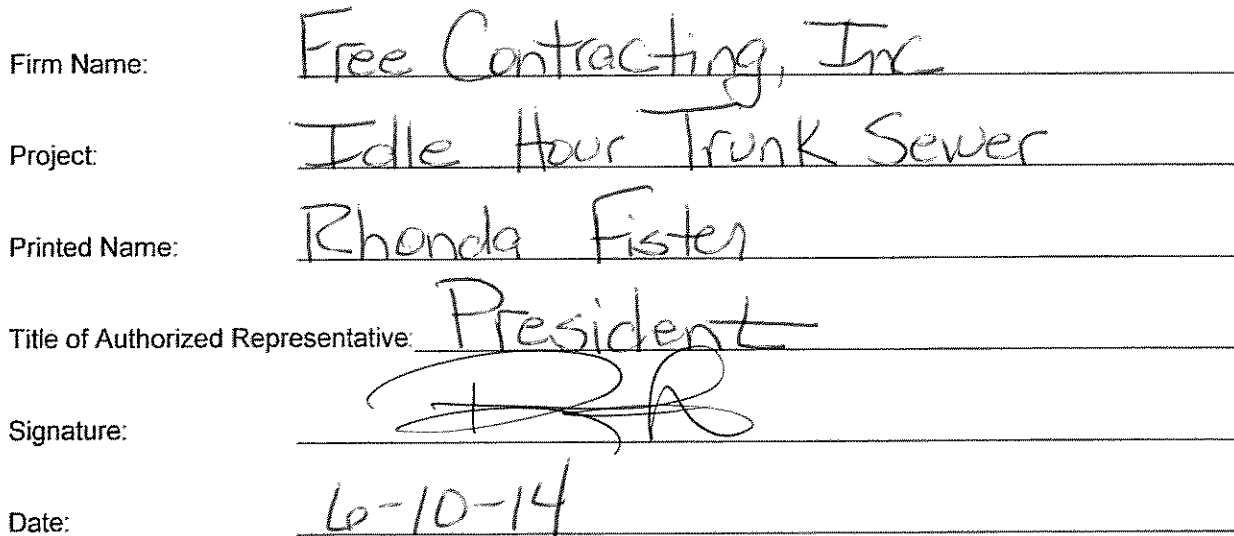 Firm Name: Free Contracting, Inc
Project: Idle Hour Trunk Sewer
Printed Name: Rhonda Fister
Title of Authorized Representative: President
Signature:
Date: 6-10-14